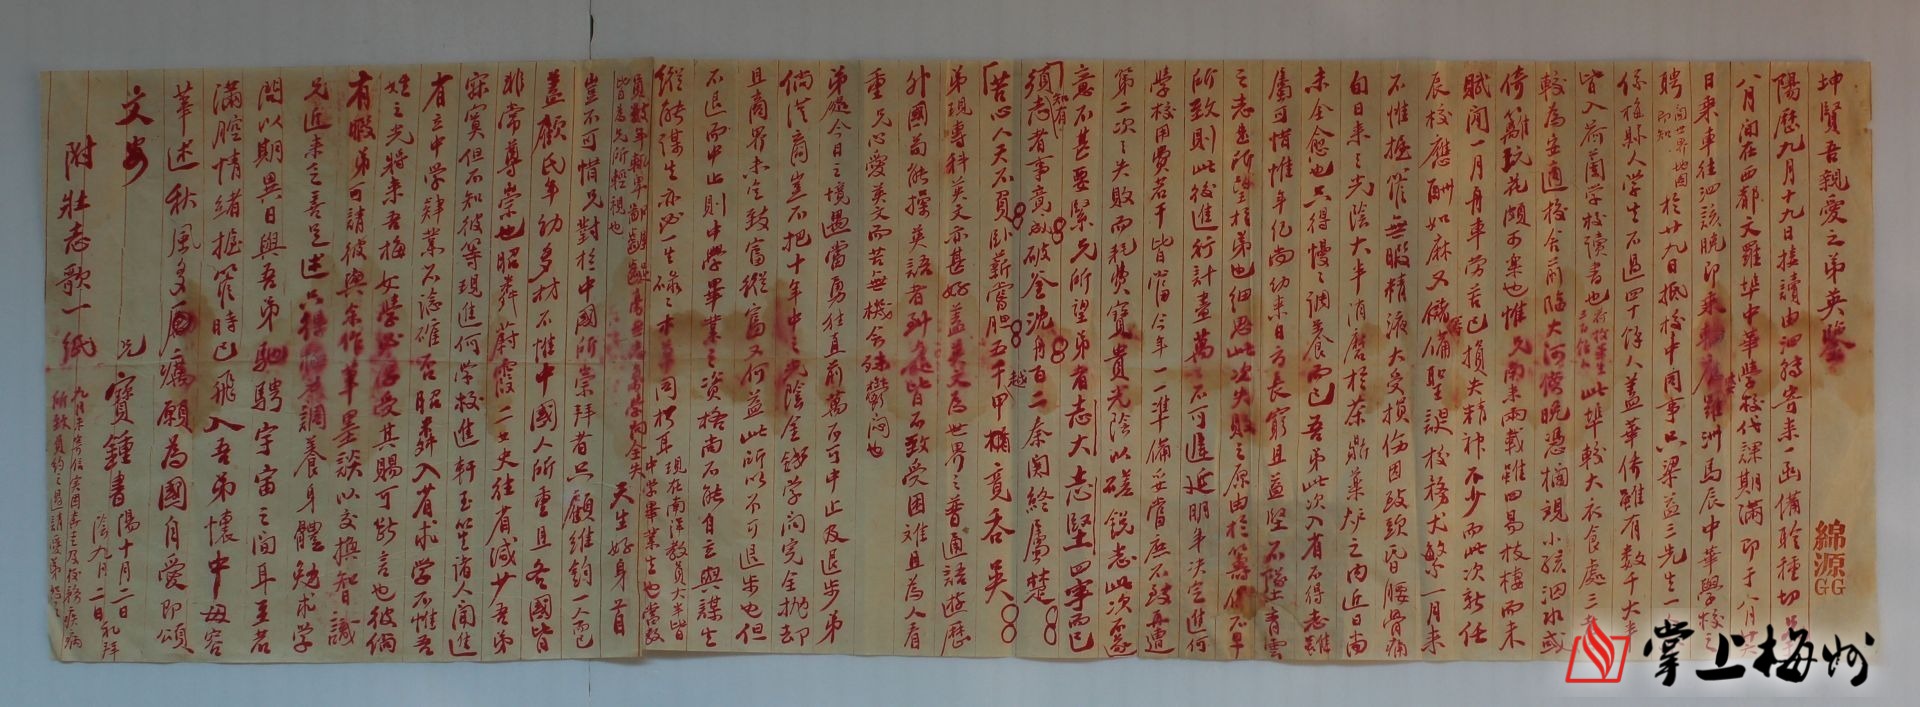 坤賢吾親愛之弟英鑒
陽歷九月十九日接讀由泗轉寄来一函備聆種切
八月間在西都文羅埠中華學校代課期滿即于八月
日乘車往泗該晚即乘 洲馬辰中華學校之
聘閱世界地図即知於廿九日抵校中同事只梁益三先生
係梅縣人學生不過四十餘人蓋華僑雖有数千大半
皆入荷蘭学校讀書也 此埠較大衣食處三者
較為安適校舍前臨大河傍晚憑欄觀小孩泅水或
倚籬玩花頗可樂也惟兄南来兩載雖四易枝棲而未
賦閒一月舟車勞苦已損失精神不少而此次新任
辰校應酬如麻又儲備聖誕校務尤繁一月来
不惟握管無暇精液大受損傷因致頭昏腰骨痛
旬日来之光陰大半消磨於茶鼎藥炉之内近日尚
未全愈也只得慢之調養而已吾弟此次入省不得志雖
屬可惜惟年紀尚幼来日方長窮且益堅不墜青雲
之志是所望於弟也細思此次失敗之原由於籌備不早
所致則此後進行計畫萬不可遲延明年决定進何
學校用費若干皆當今年一一準備妥當庶不致再遭
第二次之失敗而耗費寶貴光陰以磋銳志此次不遂
意不甚要緊兄所望弟者志大志堅四字而已
須知有志者事竟成破釜沉舟百二秦関終屬楚
苦心人天不負臥薪嘗胆五千越甲竟吞吴
弟現專科英文亦甚好蓋英文為世界之普通語遊歷
外國苟能操英語者到處皆不致受困难且為人看
重兄心愛英文而苦無機会殊鬱闷也
弟處今日之境遇當勇往直前萬不可中止及退步弟
倘從商豈不把十年中之光陰金錢学問完全抛却
且商界未必致富縱富又何益此所以不可退步也但
不退而中止則中學畢業之資格尚不能自立與謀生
縱能謀生亦必一生碌之 草木同朽耳現在南洋教員大半皆中学畢業生也當教
員数年 学问全失
皆為兄所輕視也
天生好身首
豈不可惜兄對於中國所崇拜者只顧維鈞一人而已
蓋顧氏年幼多材不惟中國人所重且各國皆
非常尊崇也昭粦蔚霞二女史往省減少吾弟
寂寞但不知彼等現進何学校進軒玉笙諸人聞進
省立中学肄業不諗確否昭粦入省求学不惟吾
姓之光將来吾梅女學必受其賜可断言也彼倘
有暇弟可請彼與余作筆墨談以交換智識
兄近来乏善足述只得 調養身體勉求学
問以期異日與吾弟馳騁宇宙之間耳至若
滿腔情緒握管時已飛入吾弟懷中毋容
華述秋風多厲願為國自愛即頌
文安
兄 寶鍾書 陽十月二日 陰九月二日 礼拜
附壯志歌一紙
九月未寄信実因喜主及校務疾病
所致負約之過請愛弟恕之
綿源
GG GG
掌上梅州